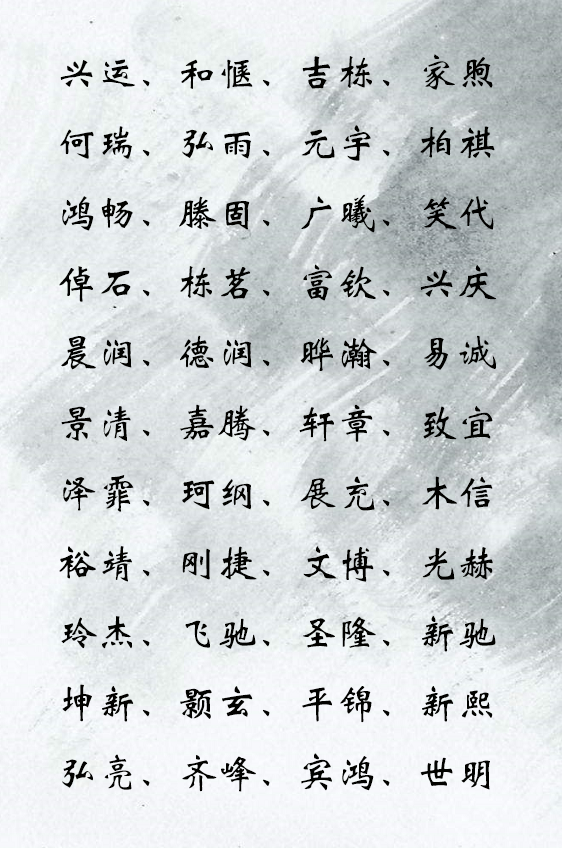 兴运、和惬、吉栋、家煦
何瑞、弘雨、元宇、柏祺
鸿畅、滕固、广曦、笑代
倬石、栋茗、富钦、兴庆
晨润、德润、晔瀚、易诚
景清、嘉腾、轩章、致宜
泽霏、珂纲、展充、木信
裕靖、刚捷、文博、光赫
玲杰、飞驰、圣隆、新驰
坤新、颢玄、平锦、新熙
弘亮、齐峰、宾鸿、世明